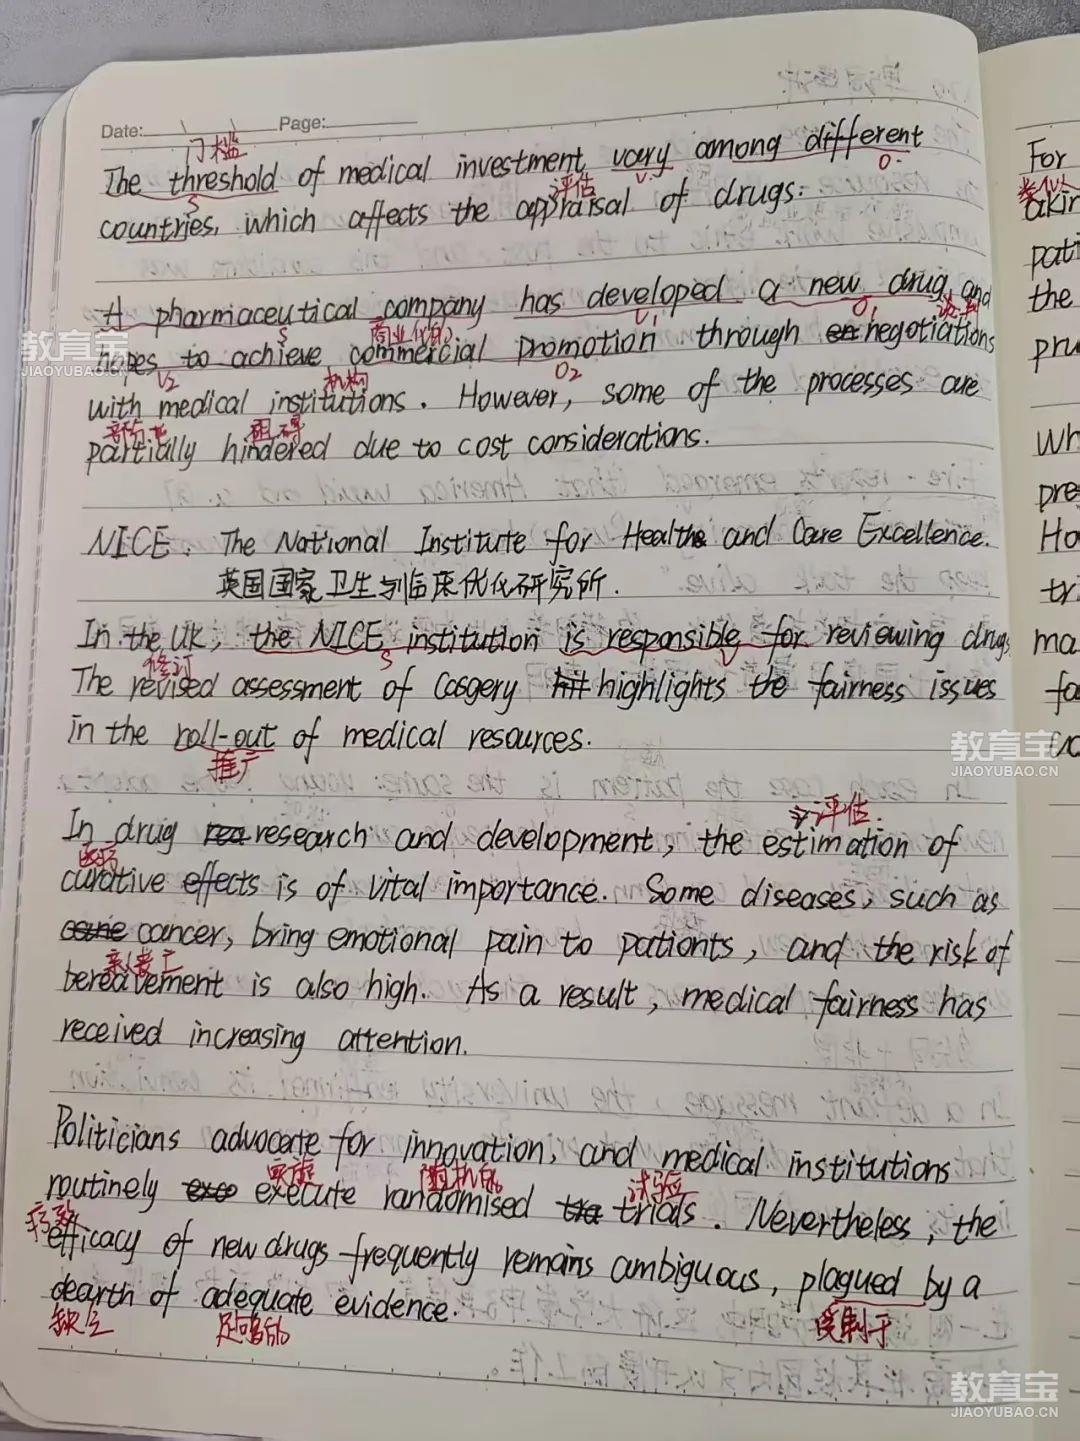 Date: Page:
门槛
The threshold of medical investment vary among different
评估
countries, which affects the appraisal of drugs.
A pharmaceutical company has developed a new drug and
商业化的
hopes to achieve commercial promotion through negotiations
机构
with medical institutions. However, some of the processes are
部分地 阻碍
partially hindered due to cost considerations.
NICE: The National Institute for Health and Care Excellence.
英国国家卫生与临床优化研究所.
In the UK, the NICE institution is responsible for reviewing drugs
修订
The revised assessment of Casgery highlights the fairness issues
in the roll-out of medical resources.
推广
评估
In drug research and development, the estimation of
医疗
curative effects is of vital importance. Some diseases, such as
cancer, bring emotional pain to pationts, and the risk of
亲人丧亡
bereavement is also high. As a result, medical fairness has
received increasing attention.
Politicians advocate for innovation, and medical institutions
实施 随机的 试验
routinely execute randomised trials. Nevertheless, the
疗效
efficacy of new drugs frequently remains ambiguous, plagued by a
dearth of adequate evidence.
缺乏 足够的 受制于
For
类似
akin
pati
the
pru
Wh
pre
Ho
tri
ma
fa
教育宝
JIAOYUBAO.CN
教育宝
JIAOYUBAO.CN
教育宝
JIAOYUBAO.CN